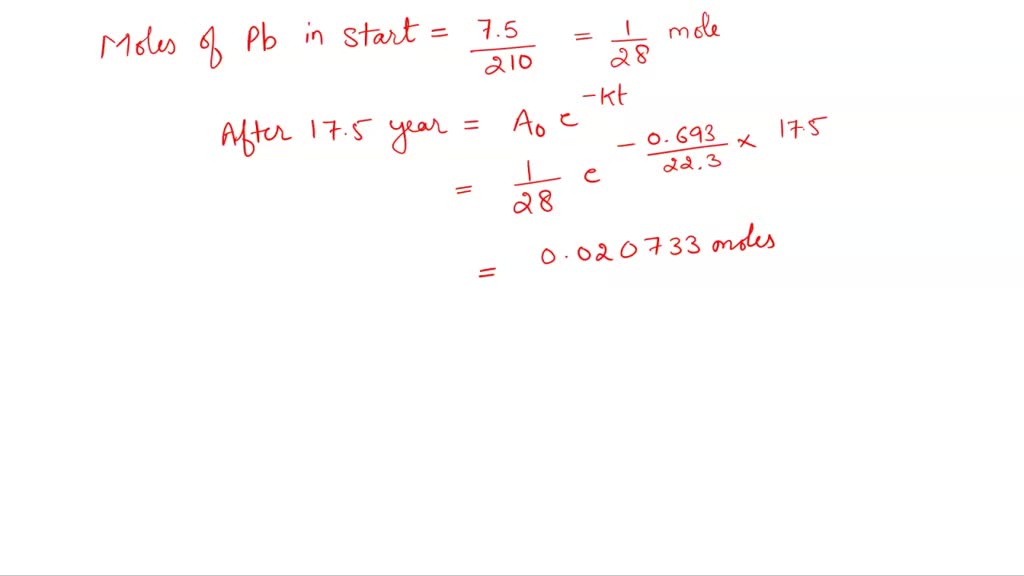 Moles of Pb in start = 7.5/210 = 1/28 mole
After 17.5 year = A₀ e^(-Kt)
= 1/28 e^(- 0.693/22.3 × 17.5)
= 0.020733 moles